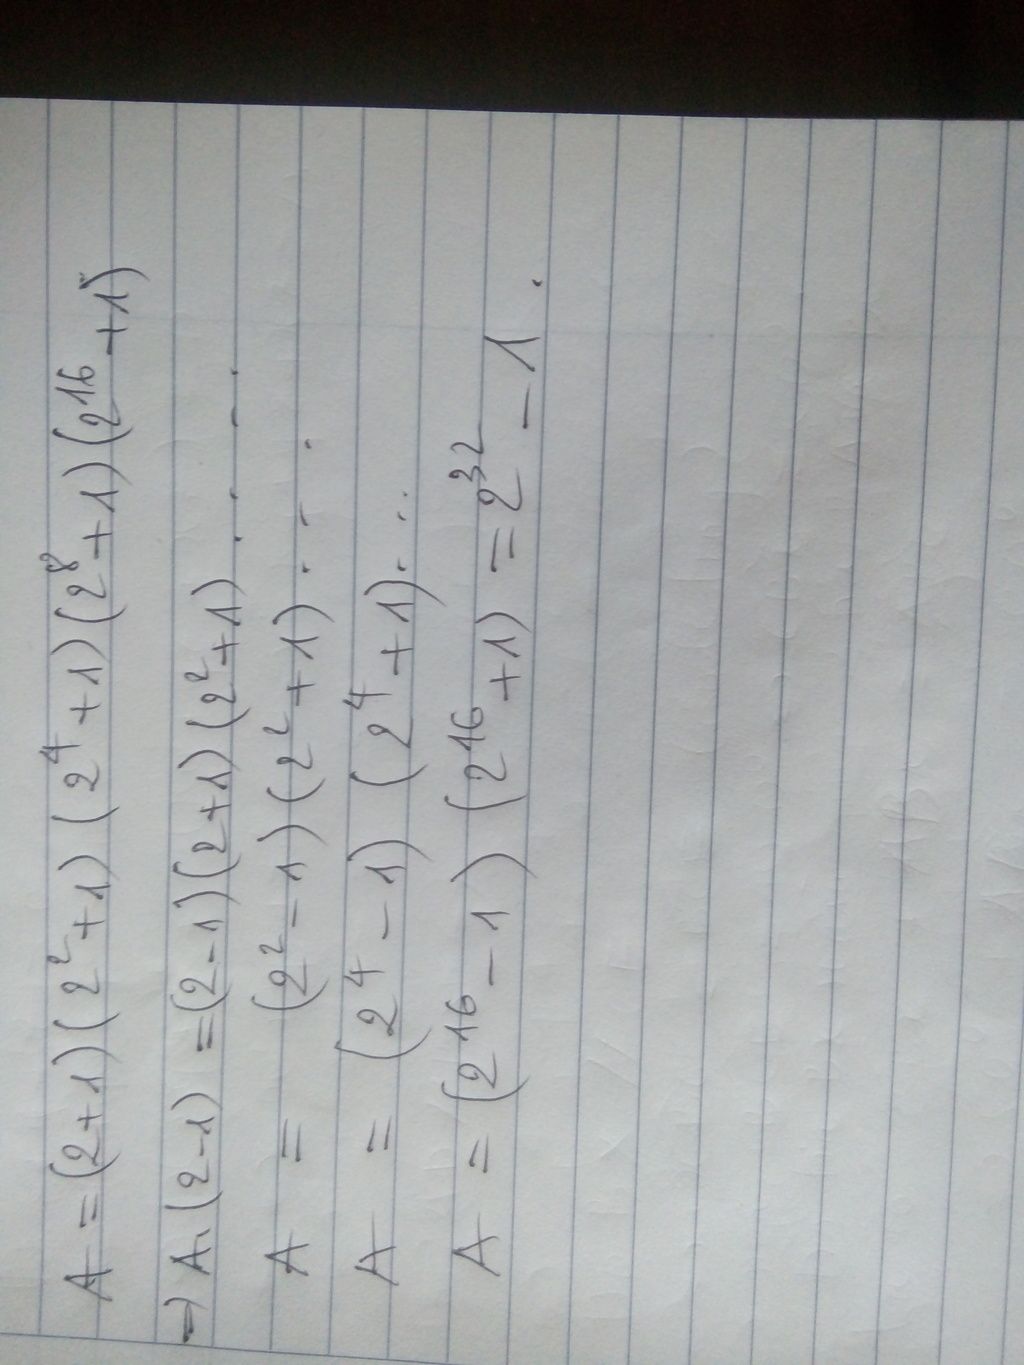 A = (2+1)(2²+1)(2⁴+1)(2⁸+1)(2¹⁶+1)
⇒ A.(2-1) = (2-1)(2+1)(2²+1) . . - - .
A = (2²-1)(2²+1) . - - .
A = (2⁴-1)(2⁴+1) . . .
A = (2¹⁶-1)(2¹⁶+1) = 2³² - 1 .